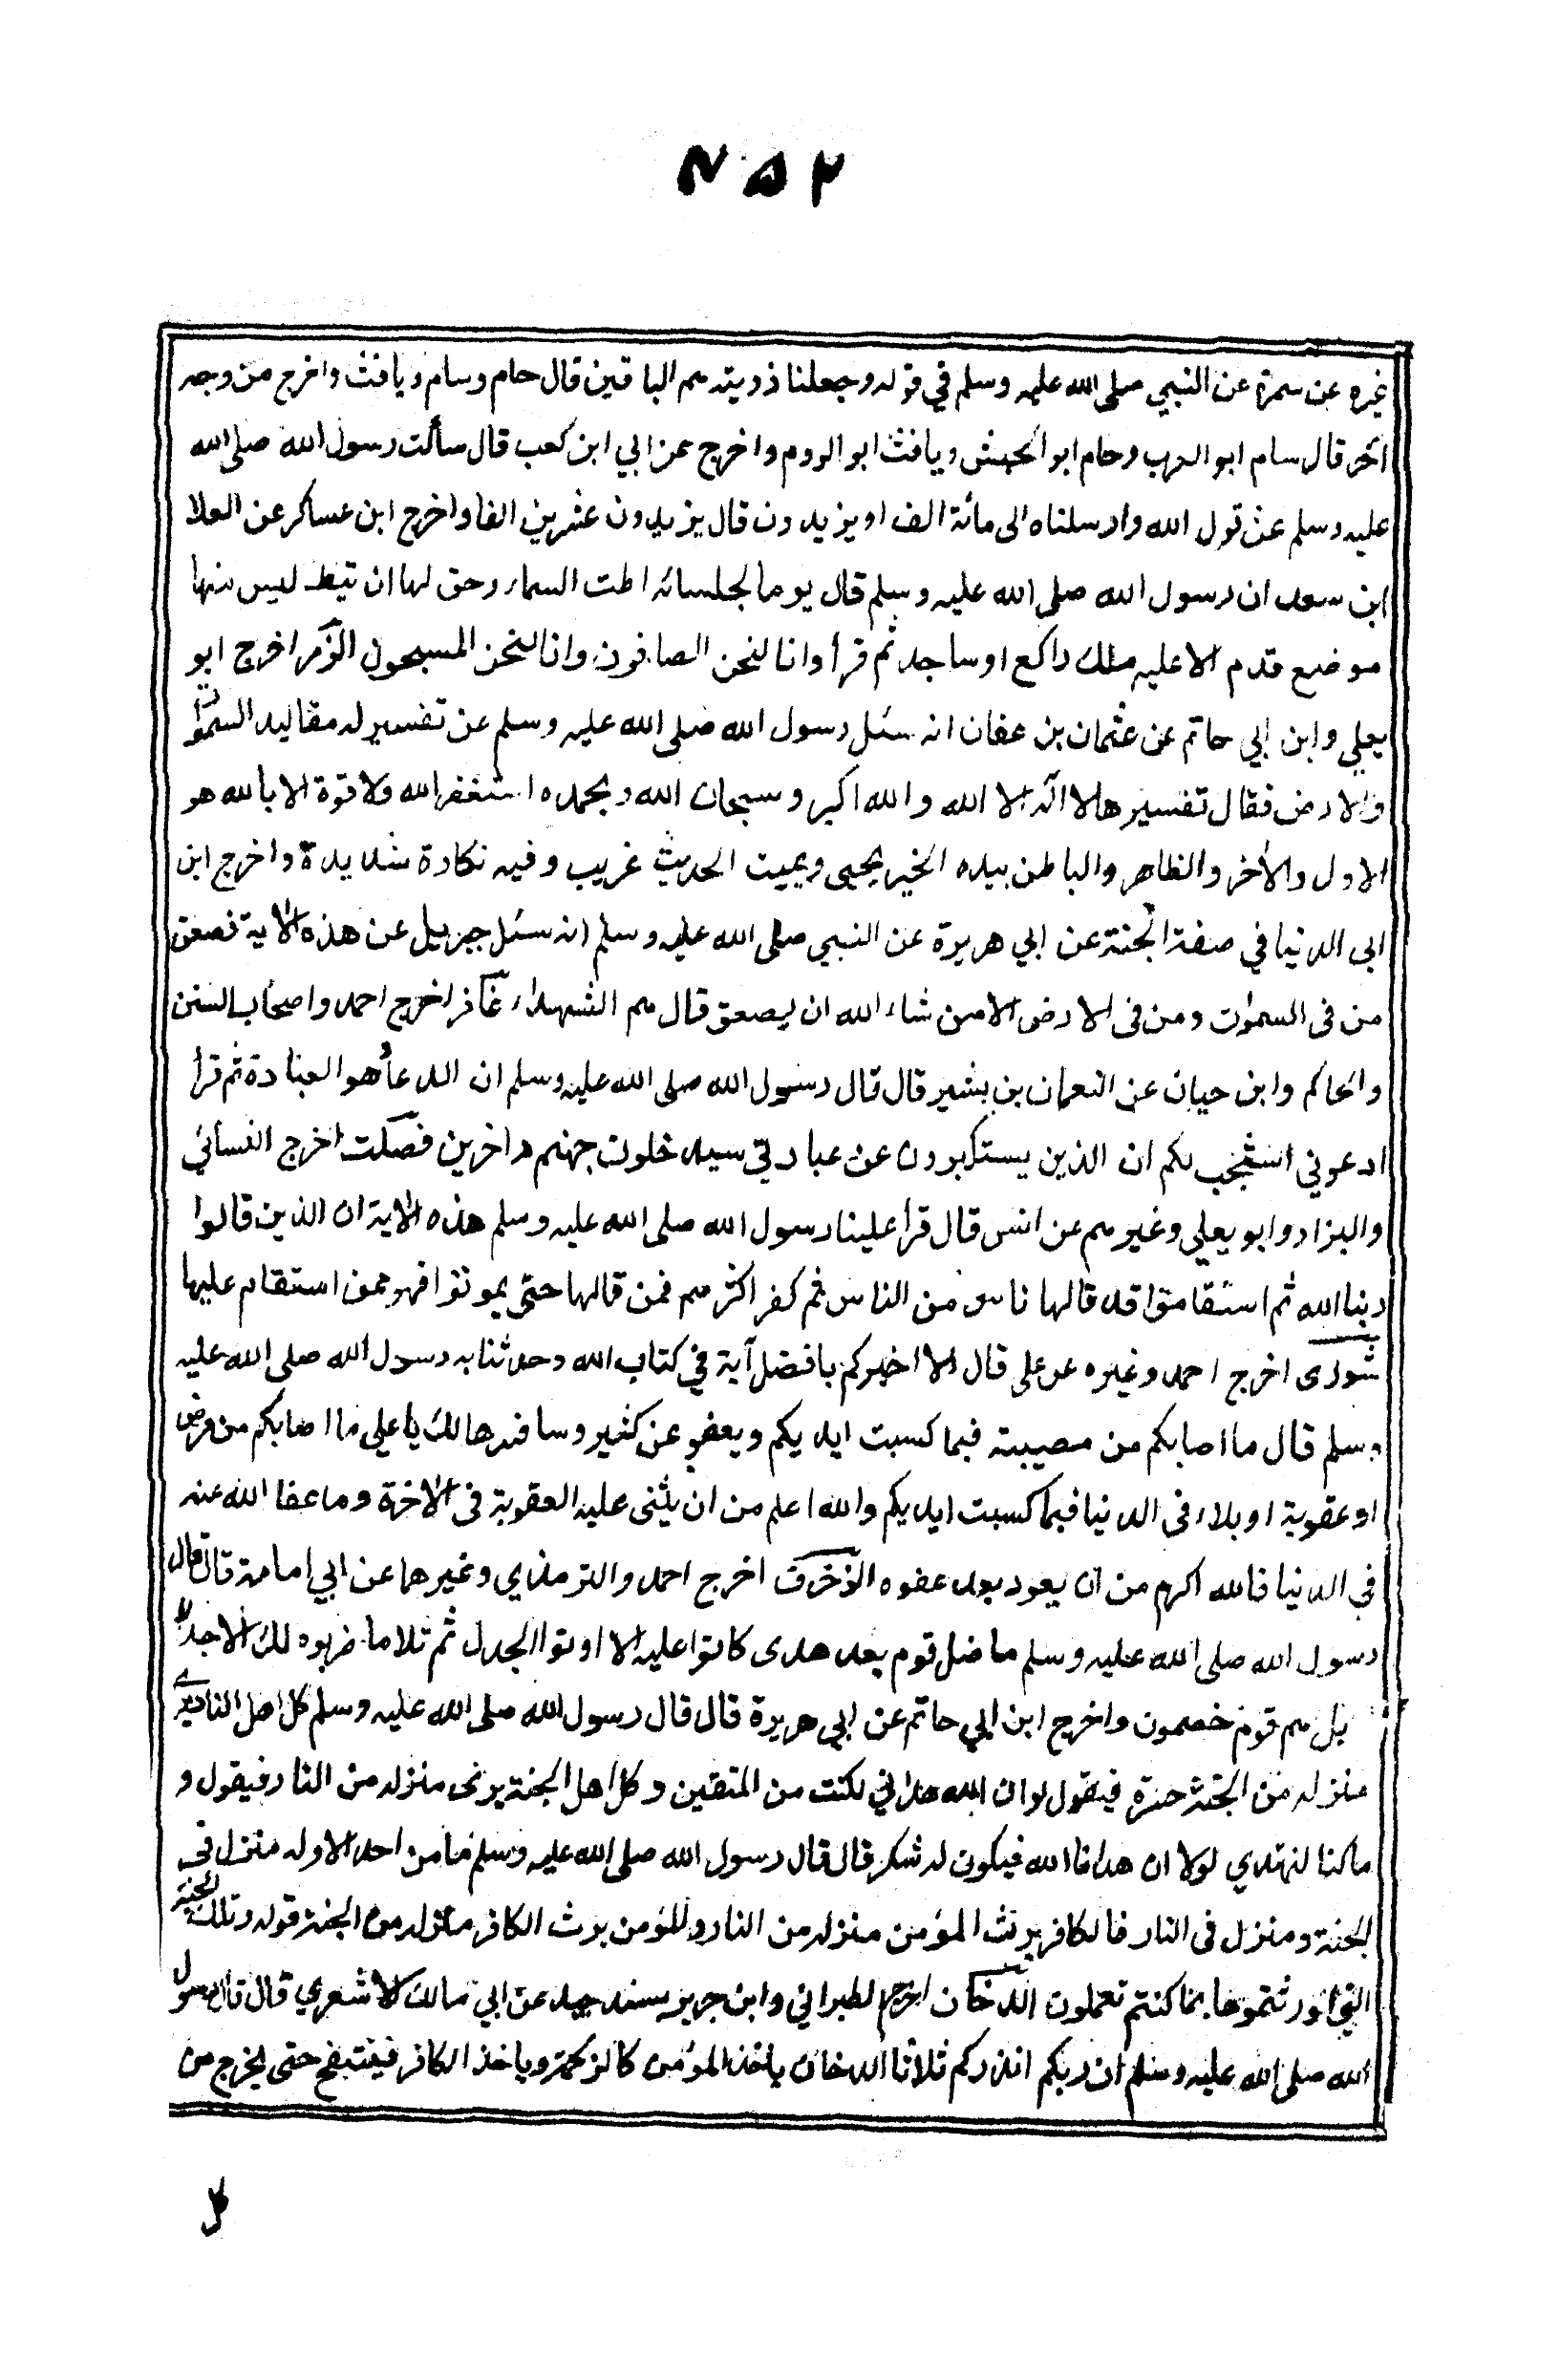 ۴۵۲
غيره عن سمرة عن النبي صلى الله عليه وسلم في قوله وجعلنا ذريته هم الباقين قال حام وسام ويافث واخرج من وجه
آخر قال سام ابو العرب وحام ابو الحبش ويافث ابو الروم واخرج عن ابي ابن كعب قال سألت رسول الله صلى الله
عليه وسلم عن قول الله وارسلناه الى مائة الف او يزيدون قال يزيدون عشرين الفا واخرج ابن عساكر عن العلا
ابن سعد ان رسول الله صلى الله عليه وسلم قال يوما لجلسائه اطت السماء وحق لها ان تيط ليس منها
موضع قدم الا عليه ملك راكع او ساجد ثم قرأ وانا لنحن الصافون وانا لنحن المسبحون الزمر اخرج ابو
يعلي وابن ابي حاتم عن عثمان بن عفان انه سئل رسول الله صلى الله عليه وسلم عن تفسير له مقاليد السموات
والارض فقال تفسيرها لا اله الا الله والله اكبر وسبحان الله وبحمده استغفر الله ولا قوة الا بالله هو
الاول والاخر والظاهر والباطن بيده الخير يحيى ويميت الحديث غريب وفيه نكارة شديدة واخرج ابن
ابى الدنيا في صفة الجنة عن ابي هريرة عن النبي صلى الله عليه وسلم انه سئل جبريل عن هذه الاية فصعق
من فى السموات ومن فى الارض الا من شاء الله ان ليصعق قال هم الشهداء غافر اخرج احمد واصحاب السنن
والحاكم وابن حبان عن النعمان بن بشير قال قال رسول الله صلى الله عليه وسلم ان الدعاء هو العبادة ثم قرأ
ادعوني استجب لكم ان الذين يستكبرون عن عبادتي سيدخلون جهنم داخرين فصلت اخرج النسائي
والبزار وابو يعلي وغيرهم عن انس قال قرأ علينا رسول الله صلى الله عليه وسلم هذه الاية ان الذين قالوا
ربنا الله ثم استقاموا قد قالها ناس من الناس ثم كفر اكثرهم فمن قالها حتى يموتوا فهو ممن استقام عليها
شورى اخرج احمد وغيره عن على قال الا اخبركم بافضل آية في كتاب الله وحدثنا به رسول الله صلى الله عليه
وسلم قال ما اصابكم من مصيبته فبما كسبت ايديكم ويعفو عن كثير وسافسرها لك يا علي ما اصابكم من مرض
او عقوبة او بلاء فى الدنيا فبما كسبت ايديكم والله اعلم من ان يثنى عليه العقوبة فى الاخرة وما عفا الله عنه
في الدنيا فالله اكرم من ان يعود بعد عفوه الزخرف اخرج احمد والترمذي وغيرهما عن ابي امامة قال قال
رسول الله صلى الله عليه وسلم ما ضل قوم بعد هدى كانوا عليه الا اوتوا الجدل ثم تلا ما ضربوه لك الا جدلا
بل هم قوم خصمون واخرج ابن ابي حاتم عن ابي هريرة قال قال رسول الله صلى الله عليه وسلم كل اهل النار يرى
منزله من الجنة حسرة فيقول لو ان الله هداني لكنت من المتقين وكل اهل الجنة يرى منزله من النار فيقول و
ما كنا لنهتدي لولا ان هدانا الله فيكون له شكر قال قال رسول الله صلى الله عليه وسلم ما من احد الا وله منزل فى
الجنة ومنزل فى النار فالكافر يرث المؤمن منزله من النار والمؤمن يرث الكافر منزله من الجنة قوله وتلك الجنة
التي اورثتموها بما كنتم تعملون الدخان اخرج الطبراني وابن جرير بسند جيد عن ابي مالك الاشعري قال قال رسول
الله صلى الله عليه وسلم ان ربكم انذركم ثلاثا الدخان ياخذ المؤمن كالزكمة وياخذ الكافر فينتفخ حتى يخرج من